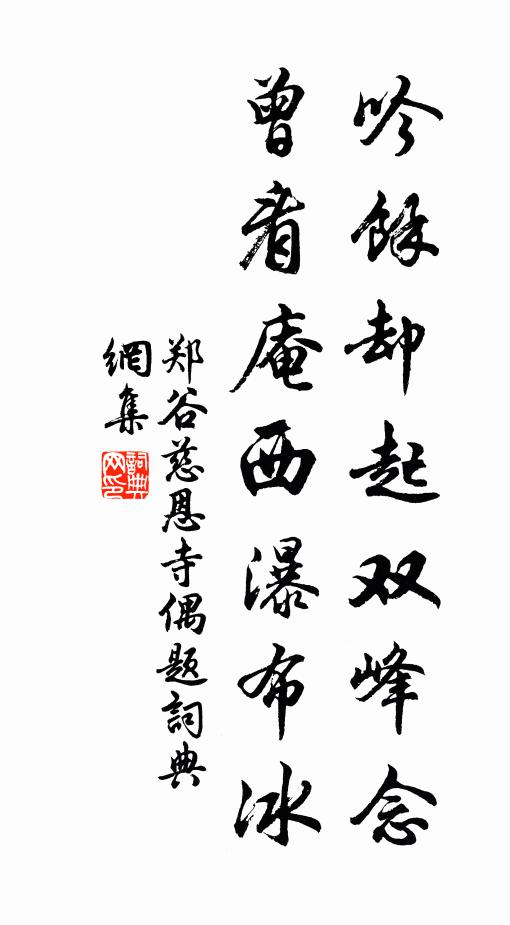 吟餘却起双峰念
曾看庵西瀑布冰
郑谷慈恩寺偶題詞典
網集
詞典网印